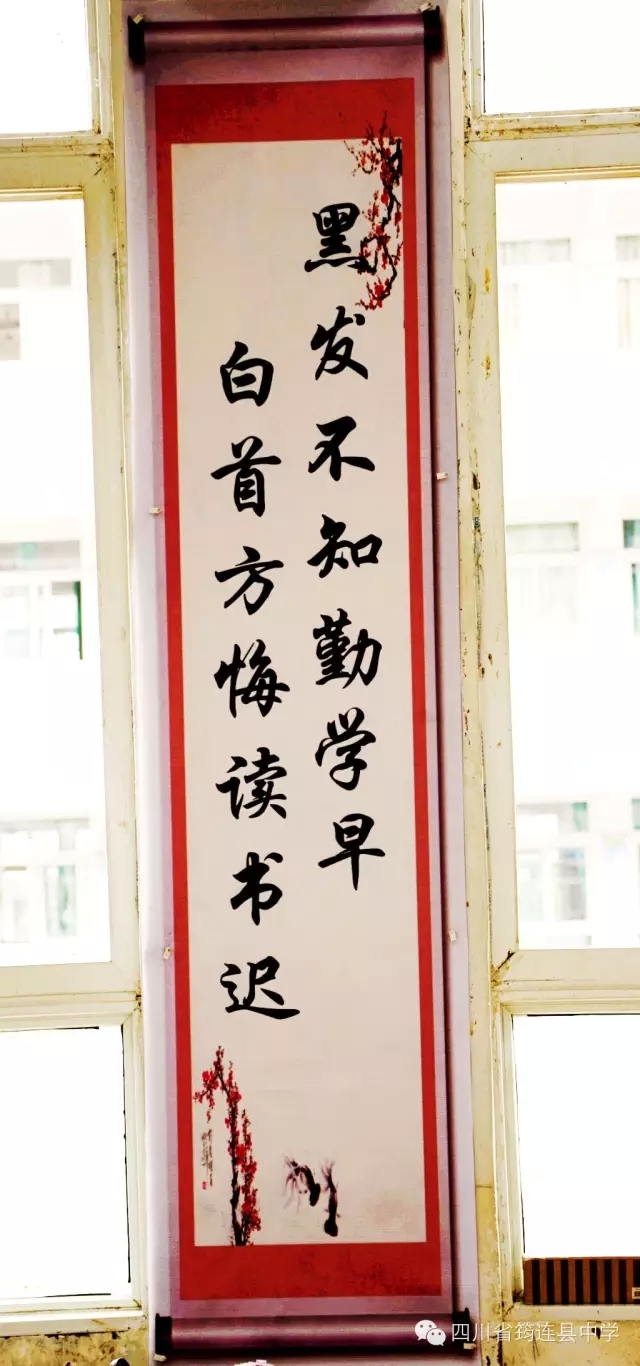 黑发不知勤学早
白首方悔读书迟
四川省筠连县中学